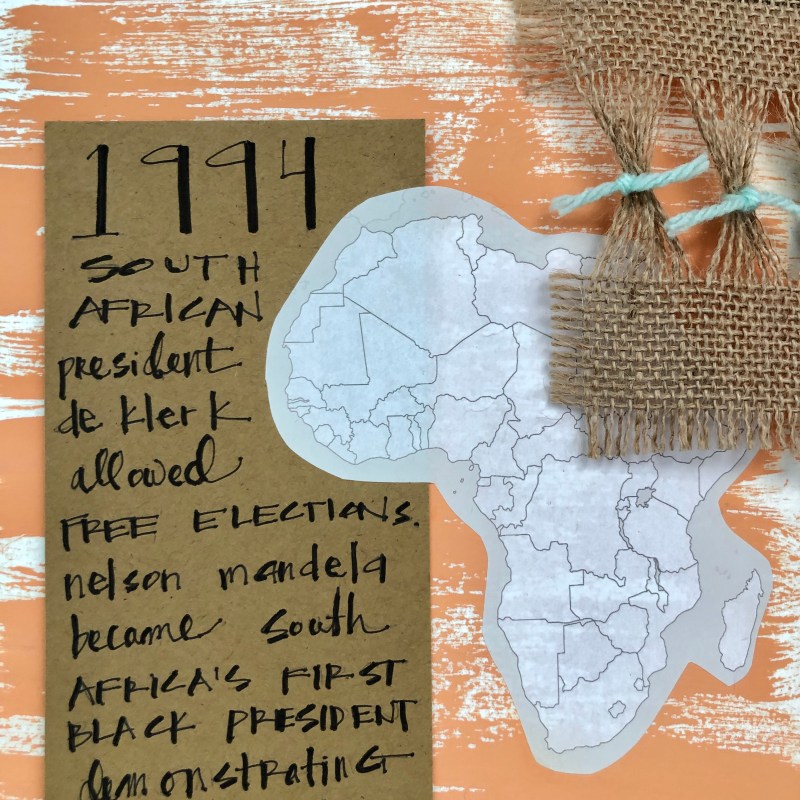 1994
SOUTH
AFRICAN
president
de klerk
allowed
FREE ELECTIONS.
nelson mandela
became south
AFRICA'S FIRST
BLACK PRESIDENT
demonstrating